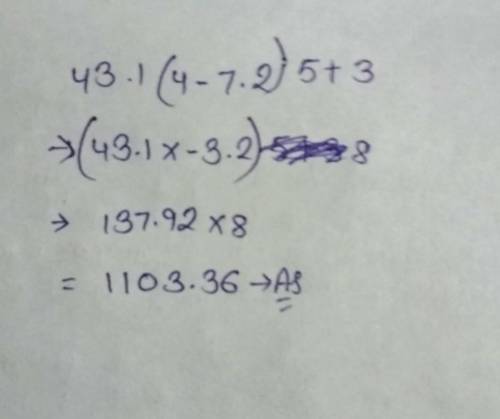 43.1(4-7.2) 5+3
→(43.1x-3.2) 8
→ 137.92×8
= 1103.36→As